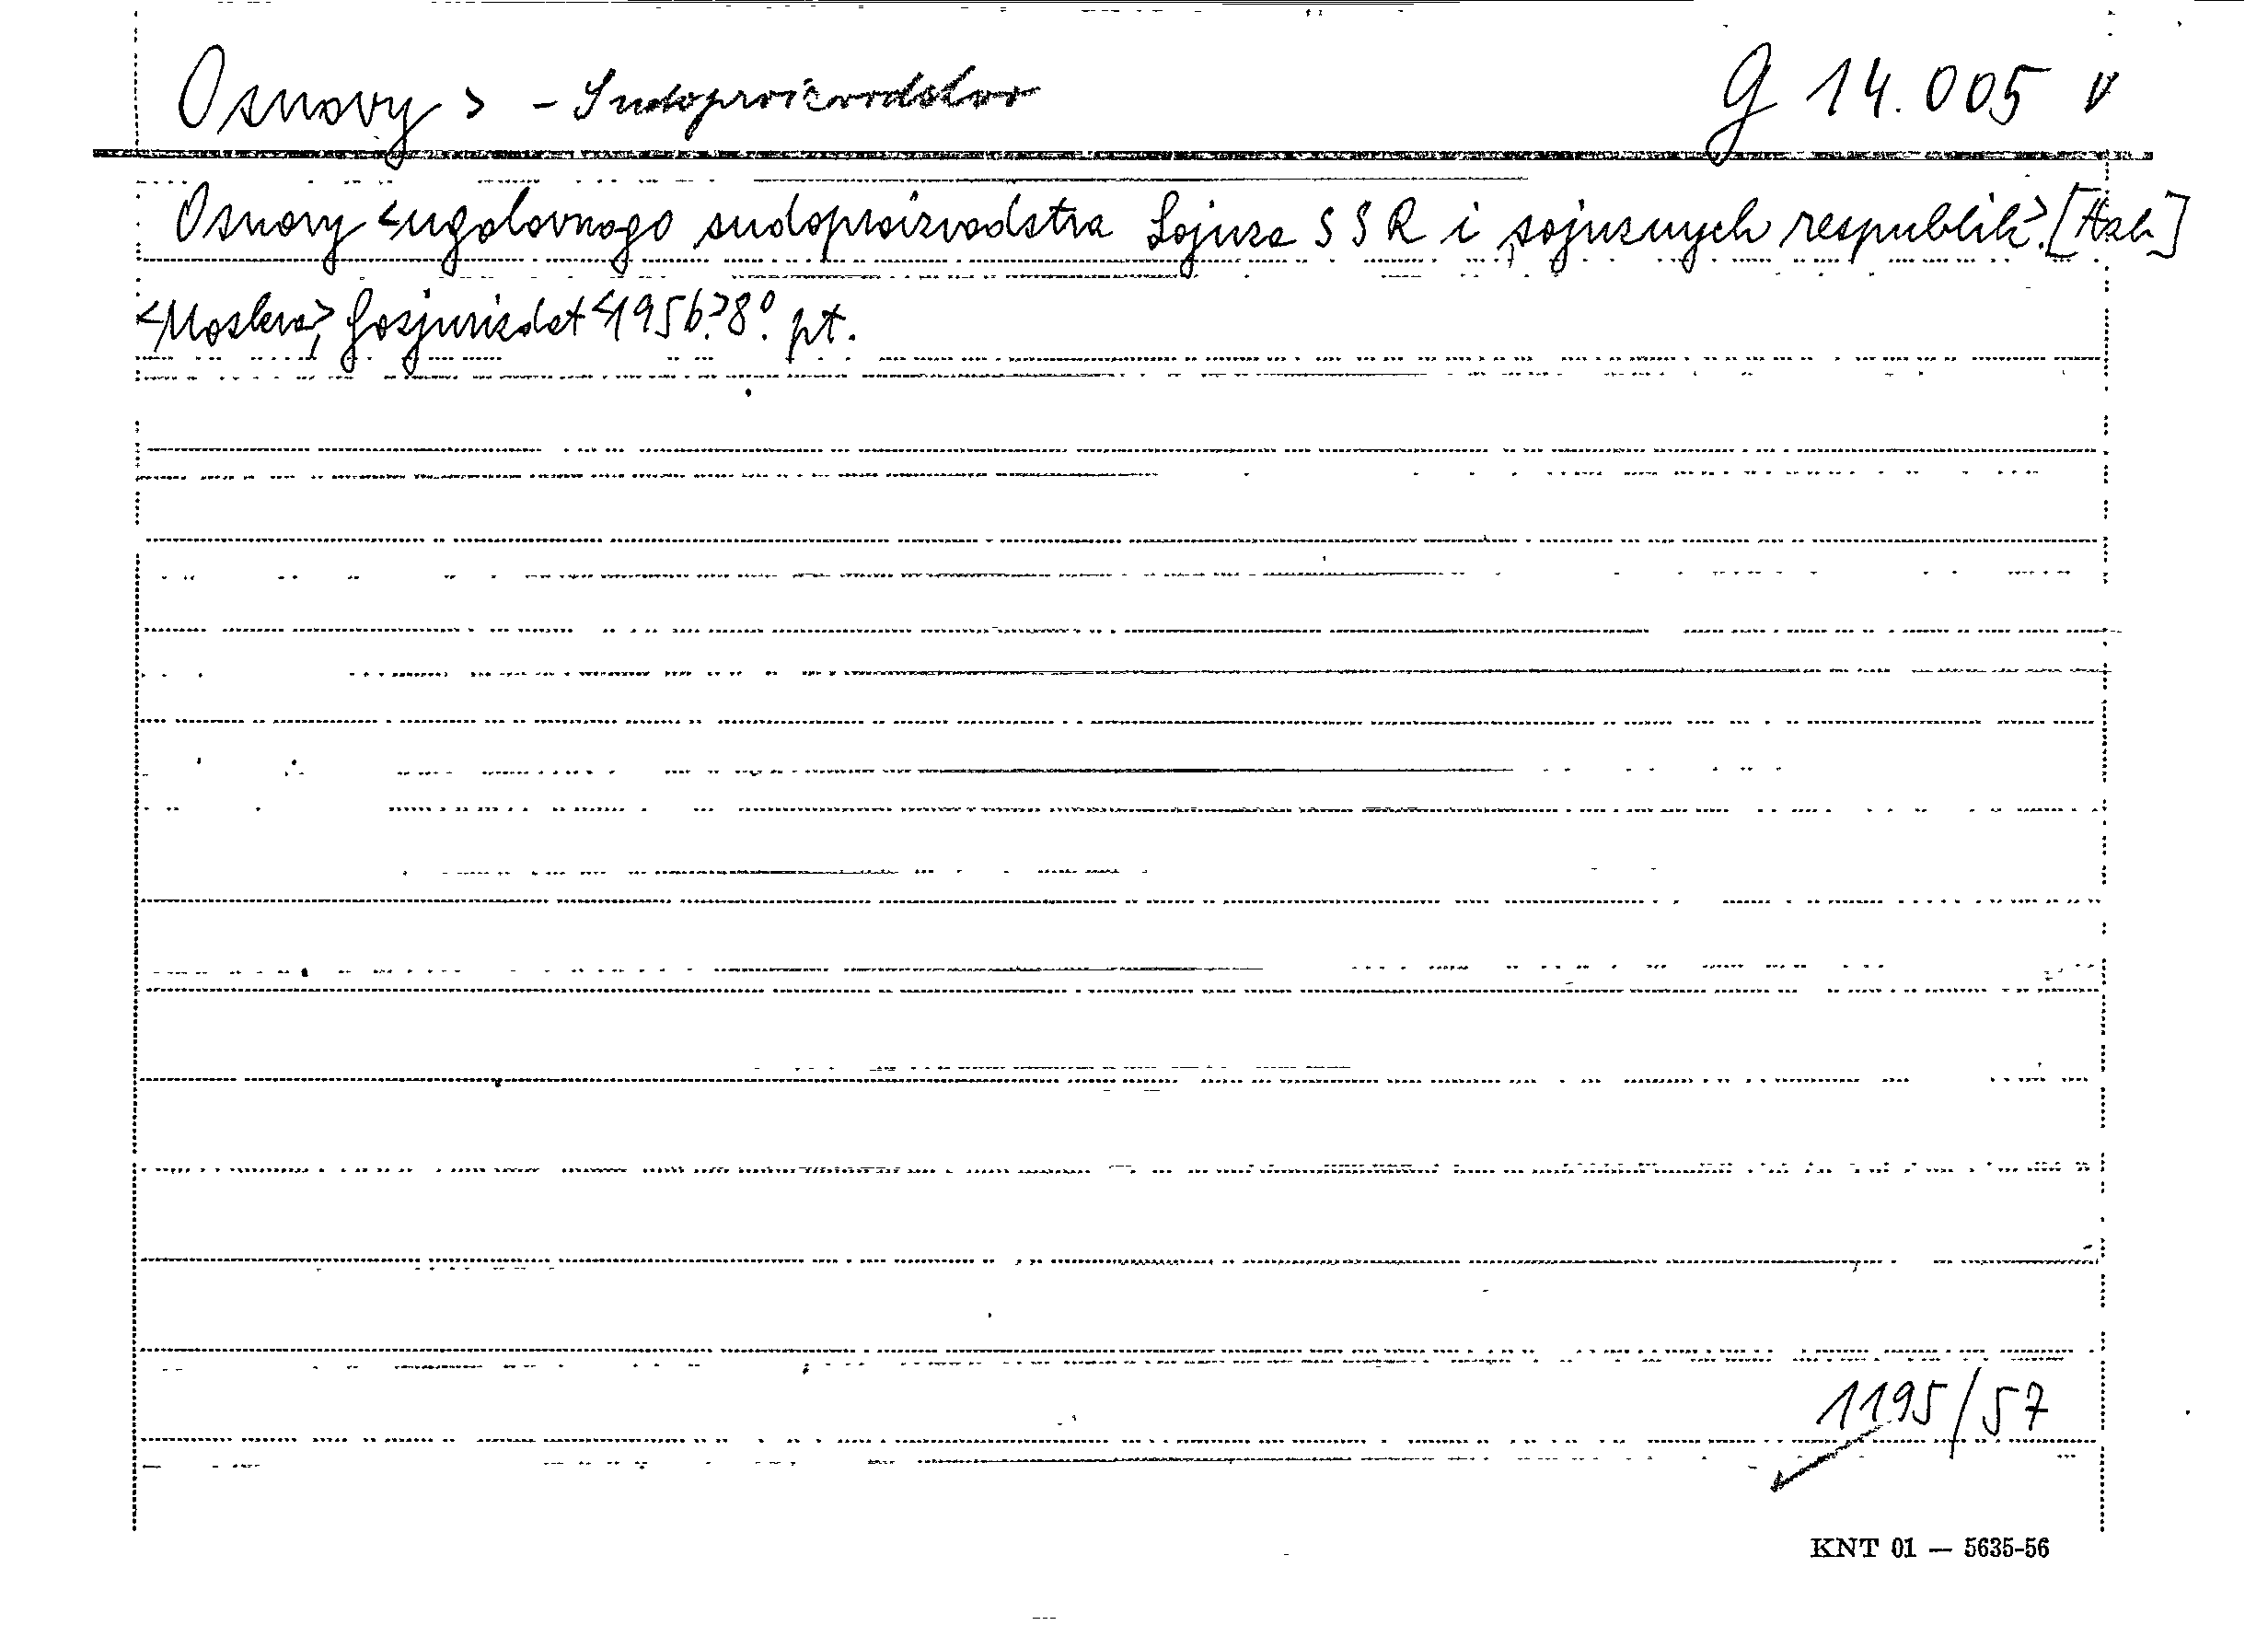 Osnovy > - Sudoproizvodstvo G 14.005 v
Osnovy <ugolovnogo sudoproizvodstva Sojuza SSR i sojuznych respublik>.
<Moskva>, Gosjurizdat <1956.> 8°. pt.
1195/57
KNT 01 — 5635-56